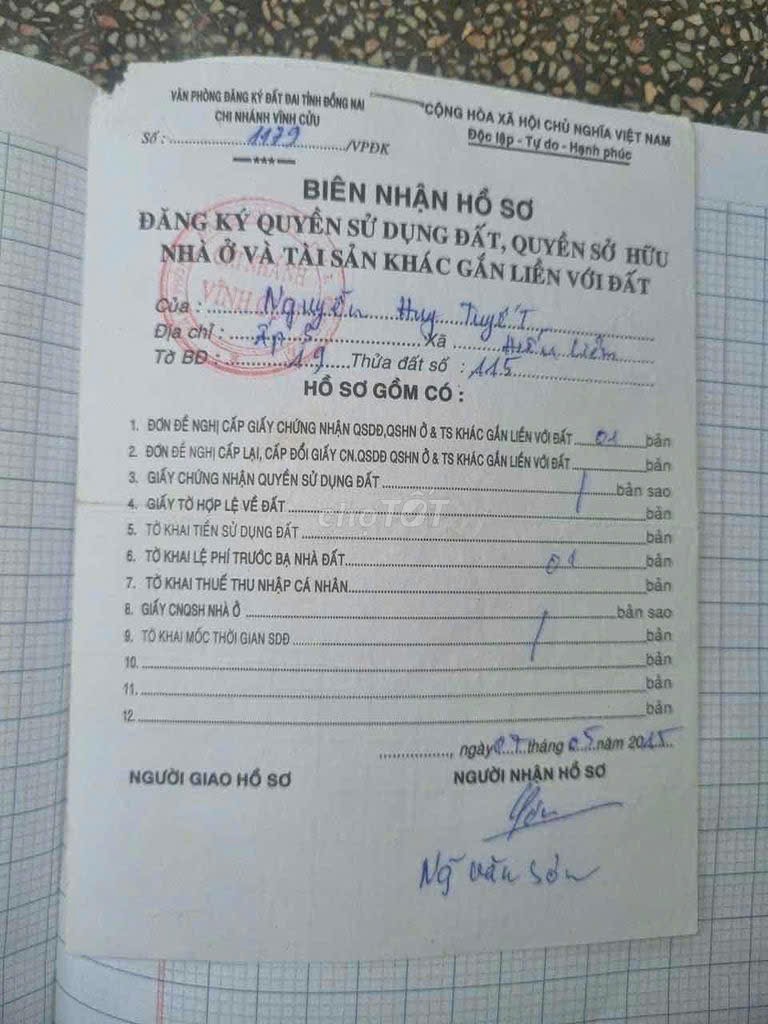 VĂN PHÒNG ĐĂNG KÝ ĐẤT ĐAI TỈNH ĐỒNG NAI
CHI NHÁNH VĨNH CỬU
Số: 1179 /VPĐK
CỘNG HÒA XÃ HỘI CHỦ NGHĨA VIỆT NAM
Độc lập - Tự do - Hạnh phúc
BIÊN NHẬN HỒ SƠ
ĐĂNG KÝ QUYỀN SỬ DỤNG ĐẤT, QUYỀN SỞ HỮU
NHÀ Ở VÀ TÀI SẢN KHÁC GẮN LIỀN VỚI ĐẤT
CHI NHÁNH
VĨNH CỬU
Của : Nguyễn Huy Tuyết
Địa chỉ : Ấp 5 Xã Hiếu Liêm
Tờ BĐ: 19 Thửa đất số : 115
HỒ SƠ GỒM CÓ :
1. ĐƠN ĐỀ NGHỊ CẤP GIẤY CHỨNG NHẬN QSDĐ,QSHN Ở & TS KHÁC GẮN LIỀN VỚI ĐẤT 01 bản
2. ĐƠN ĐỀ NGHỊ CẤP LẠI, CẤP ĐỔI GIẤY CN.QSDĐ QSHN Ở & TS KHÁC GẮN LIỀN VỚI ĐẤT bản
3. GIẤY CHỨNG NHẬN QUYỀN SỬ DỤNG ĐẤT / bản sao
4. GIẤY TỜ HỢP LỆ VỀ ĐẤT bản
5. TỜ KHAI TIỀN SỬ DỤNG ĐẤT bản
6. TỜ KHAI LỆ PHÍ TRƯỚC BẠ NHÀ ĐẤT 01 bản
7. TỜ KHAI THUẾ THU NHẬP CÁ NHÂN bản
8. GIẤY CNQSH NHÀ Ở bản sao
9. TỜ KHAI MỐC THỜI GIAN SDĐ / bản
10. bản
11. bản
12. bản
choTỐT
, ngày 07 tháng 05 năm 2015
NGƯỜI GIAO HỒ SƠ
NGƯỜI NHẬN HỒ SƠ
Ng̃ Văn Sơn